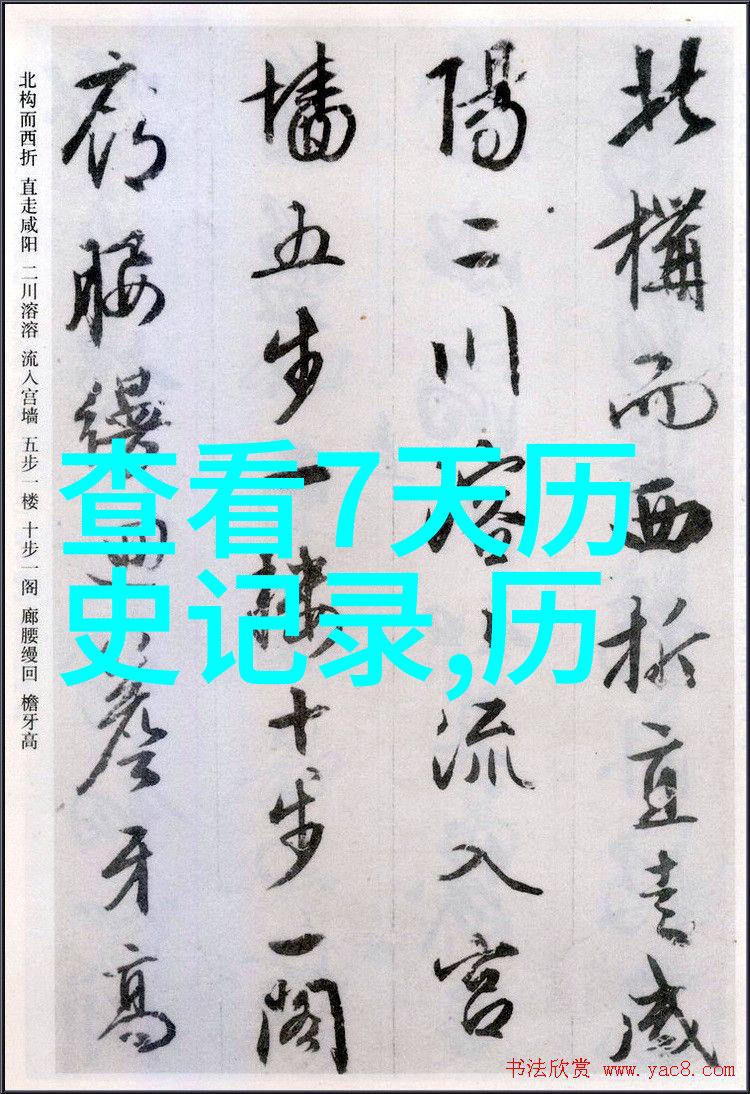 北構而西折直走咸
陽二川溶々流入宮
墻五步一樓十步一閣
廊腰縵迴簷牙高
北构而西折 直走咸阳 二川溶溶 流入宫墙 五步一楼 十步一阁 廊腰缦回 檐牙高
查看7天历
史记录,历
书法欣赏 www.yac8.com